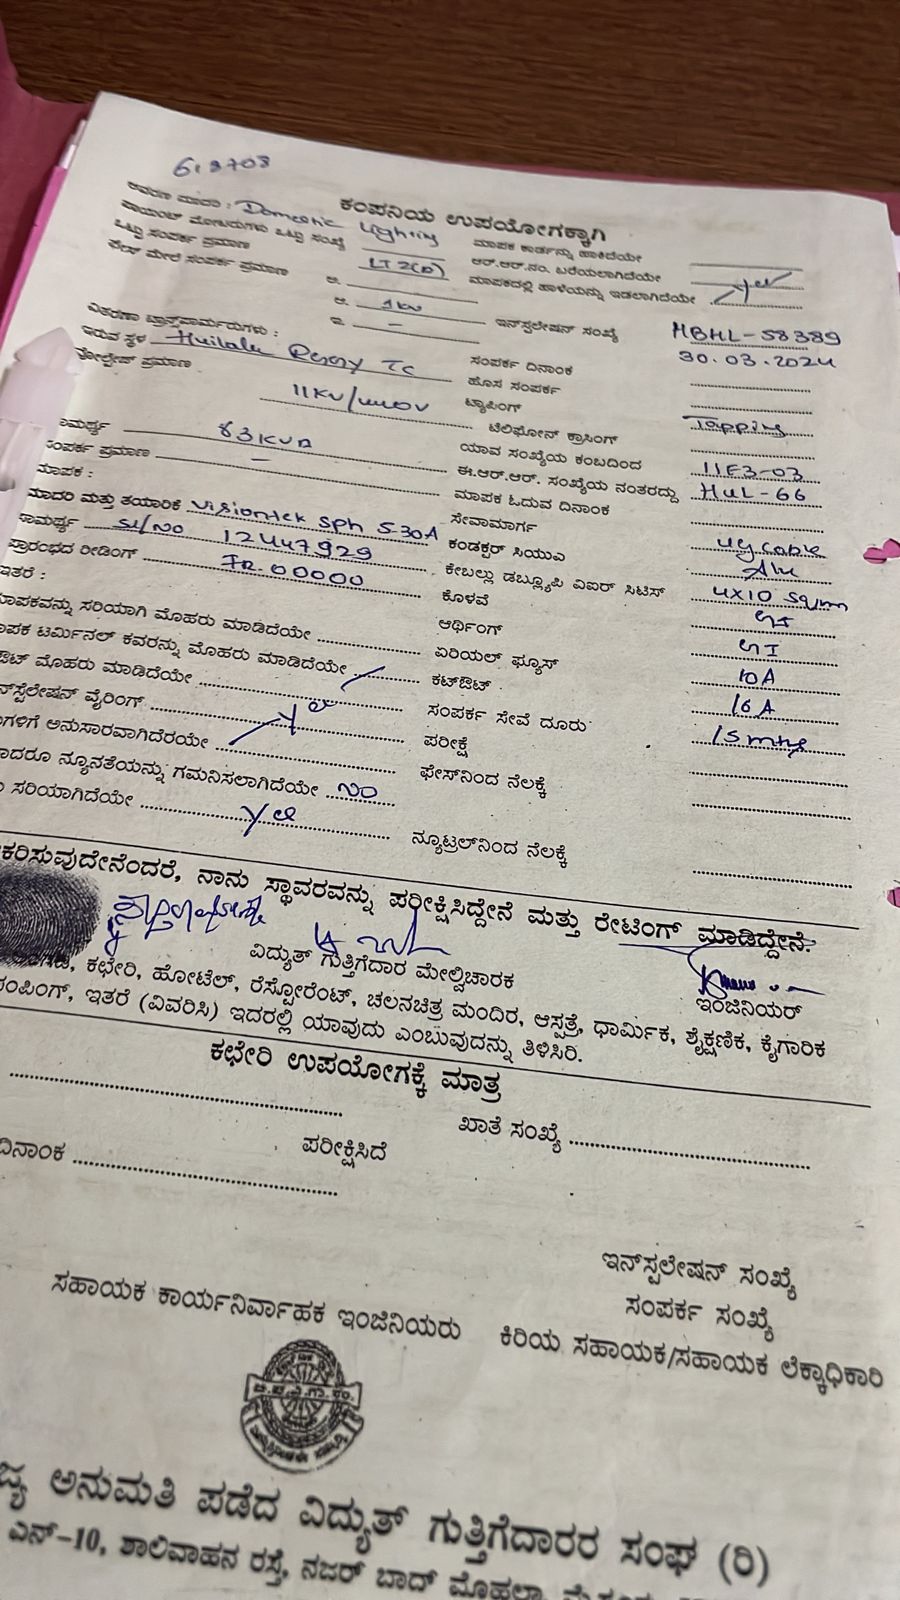 618703
ಕಂಪನಿಯ ಉಪಯೋಗಕ್ಕಾಗಿ
ಆವರಣ ಮಾದರಿ : Domestic Lighting
ಪಾಯಿಂಟ್ ಮೋಟರುಗಳು ಒಟ್ಟು ಸಂಖ್ಯೆ
ಒಟ್ಟು ಸಂಪರ್ಕ ಪ್ರಮಾಣ LT2(a)
ಮೇಲೆ ಸಂಪರ್ಕ ಪ್ರಮಾಣ ಅ.
ಆ. 1kw
ಇ. –
ವಿತರಣಾ ಟ್ರಾನ್ಸ್‌ಫಾರ್ಮರುಗಳು :
ಇರುವ ಸ್ಥಳ TC
ವೋಲ್ಟೇಜ್ ಪ್ರಮಾಣ 11KV/440V
ಸಾಮರ್ಥ್ಯ 63KVA
ಸಂಪರ್ಕ ಪ್ರಮಾಣ –
ಮಾಪಕ :
ಮಾದರಿ ಮತ್ತು ತಯಾರಿಕೆ Visiontek Sph 5-30A
ಸಾಮರ್ಥ್ಯ Sl/No 12447929
ಪ್ರಾರಂಭದ ರೀಡಿಂಗ್ IR. 00000
ಇತರೆ :
ಮಾಪಕವನ್ನು ಸರಿಯಾಗಿ ಮೊಹರು ಮಾಡಿದೆಯೇ
ಮಾಪಕ ಟರ್ಮಿನಲ್ ಕವರನ್ನು ಮೊಹರು ಮಾಡಿದೆಯೇ
ಔಟ್ ಮೊಹರು ಮಾಡಿದೆಯೇ
ಇನ್‌ಸ್ಪಲೇಷನ್ ವೈರಿಂಗ್ Yes
ಗಳಿಗೆ ಅನುಸಾರವಾಗಿದೆರಯೇ
ಾದರೂ ನ್ಯೂನತೆಯನ್ನು ಗಮನಿಸಲಾಗಿದೆಯೇ NO
ಸರಿಯಾಗಿದೆಯೇ Yes
ಮಾಪಕ ಕಾರ್ಡನ್ನು ಹಾಕಿದೆಯೇ
ಆರ್.ಆರ್.ನಂ. ಬರೆಯಲಾಗಿದೆಯೇ
ಮಾಪಕದಲ್ಲಿ ಹಾಳೆಯನ್ನು ಇಡಲಾಗಿದೆಯೇ Yes
ಇನ್‌ಸ್ಪಲೇಷನ್ ಸಂಖ್ಯೆ HBHL-58389
ಸಂಪರ್ಕ ದಿನಾಂಕ 30.03.2024
ಹೊಸ ಸಂಪರ್ಕ
ಟ್ಯಾಪಿಂಗ್ Tapping
ಟೆಲಿಫೋನ್ ಕ್ರಾಸಿಂಗ್
ಯಾವ ಸಂಖ್ಯೆಯ ಕಂಬದಿಂದ 11F3-03
ಈ.ಆರ್.ಆರ್. ಸಂಖ್ಯೆಯ ನಂತರದ್ದು HUL-66
ಮಾಪಕ ಓದುವ ದಿನಾಂಕ
ಸೇವಾಮಾರ್ಗ ug cable
ಕಂಡಕ್ಟರ್ ಸಿಯುವಿ Alu
ಕೇಬಲ್ಲು ಡಬ್ಲ್ಯೂಪಿ ಎಐರ್ ಸಿಟಿಸ್ 4x10 sqmm
ಕೊಳವೆ GI
ಆರ್ಥಿಂಗ್ GI
ಏರಿಯಲ್ ಫ್ಯೂಸ್ 10A
ಕಟ್‌ಔಟ್ 16A
ಸಂಪರ್ಕ ಸೇವೆ ದೂರು 15 mtrs
ಪರೀಕ್ಷೆ
ಫೇಸ್‌ನಿಂದ ನೆಲಕ್ಕೆ
ನ್ಯೂಟ್ರಲ್‌ನಿಂದ ನೆಲಕ್ಕೆ
ಕರಿಸುವುದೇನೆಂದರೆ, ನಾನು ಸ್ಥಾವರವನ್ನು ಪರೀಕ್ಷಿಸಿದ್ದೇನೆ ಮತ್ತು ರೇಟಿಂಗ್ ಮಾಡಿದ್ದೇನೆ.
ವಿದ್ಯುತ್ ಗುತ್ತಿಗೆದಾರ ಮೇಲ್ವಿಚಾರಕ ಇಂಜಿನಿಯರ್
ಕಛೇರಿ, ಹೋಟೆಲ್, ರೆಸ್ಟೋರೆಂಟ್, ಚಲನಚಿತ್ರ ಮಂದಿರ, ಆಸ್ಪತ್ರೆ, ಧಾರ್ಮಿಕ, ಶೈಕ್ಷಣಿಕ, ಕೈಗಾರಿಕ
ಪಂಪಿಂಗ್, ಇತರೆ (ವಿವರಿಸಿ) ಇದರಲ್ಲಿ ಯಾವುದು ಎಂಬುವುದನ್ನು ತಿಳಿಸಿರಿ.
ಕಛೇರಿ ಉಪಯೋಗಕ್ಕೆ ಮಾತ್ರ
ಖಾತೆ ಸಂಖ್ಯೆ
ದಿನಾಂಕ ಪರೀಕ್ಷಿಸಿದೆ
ಇನ್‌ಸ್ಪಲೇಷನ್ ಸಂಖ್ಯೆ
ಸಂಪರ್ಕ ಸಂಖ್ಯೆ
ಸಹಾಯಕ ಕಾರ್ಯನಿರ್ವಾಹಕ ಇಂಜಿನಿಯರು ಕಿರಿಯ ಸಹಾಯಕ/ಸಹಾಯಕ ಲೆಕ್ಕಾಧಿಕಾರಿ
ಜ್ಯ ಅನುಮತಿ ಪಡೆದ ವಿದ್ಯುತ್ ಗುತ್ತಿಗೆದಾರರ ಸಂಘ (ರಿ)
ಎನ್-10, ಶಾಲಿವಾಹನ ರಸ್ತೆ, ನಜರ್ ಬಾದ್ ಮೊಹಲ್ಲಾ,